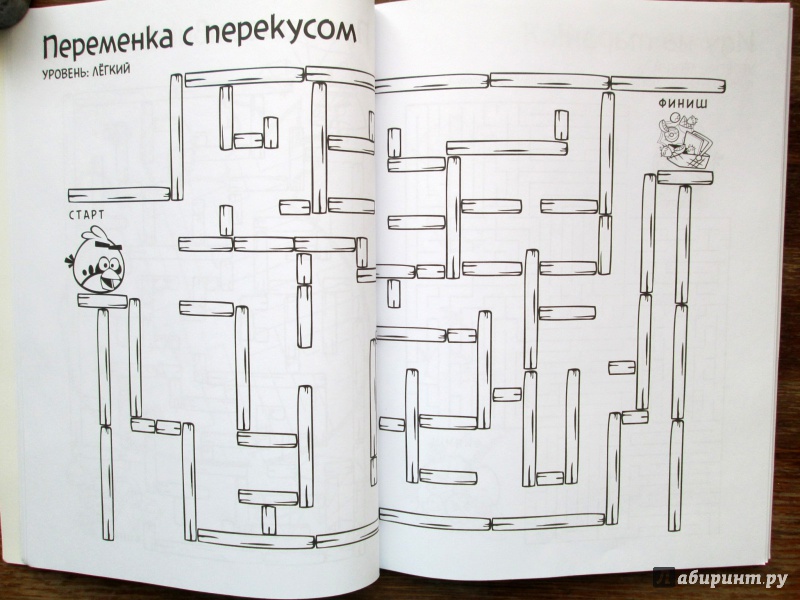 Переменка с перекусом
УРОВЕНЬ: ЛЁГКИЙ
ФИНИШ
СТАРТ
Лабиринт.ру